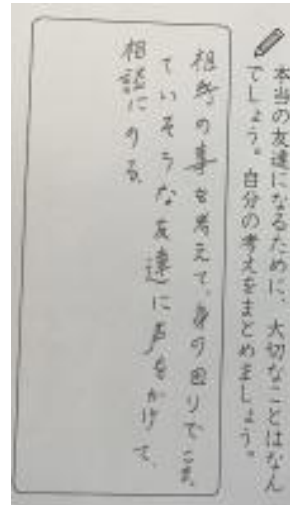 本当の友達になるために、大切なことはなん
でしょう。自分の考えをまとめましょう。
相手の事を考えて、身の回りでこま
ていそうな友達に声をかけて、
相談にのる。